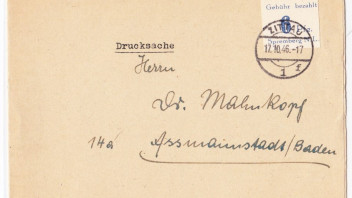 Gebühr bezahlt
Spremberg
ZITTAU
17.10.46.-17
1 f
Drucksache
Herrn
Dr. Mahnkopf
14a
Assmannstadt/Baden